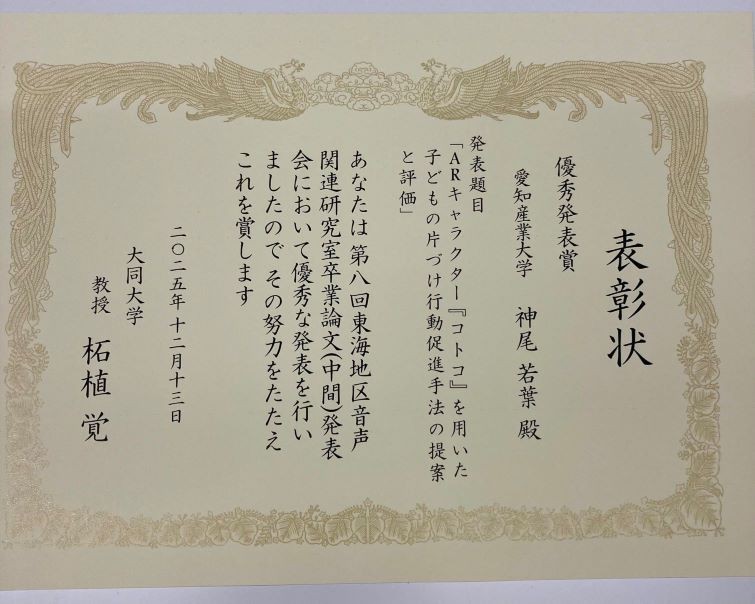 表彰状
優秀発表賞
愛知産業大学 神尾 若葉 殿
発表題目
「ARキャラクター『コトコ』を用いた
子どもの片づけ行動促進手法の提案
と評価」
あなたは 第八回東海地区音声
関連研究室卒業論文(中間)発表
会において優秀な発表を行い
ましたので その努力をたたえ
これを賞します
二〇二五年十二月十三日
大同大学
教授 柘植 覚